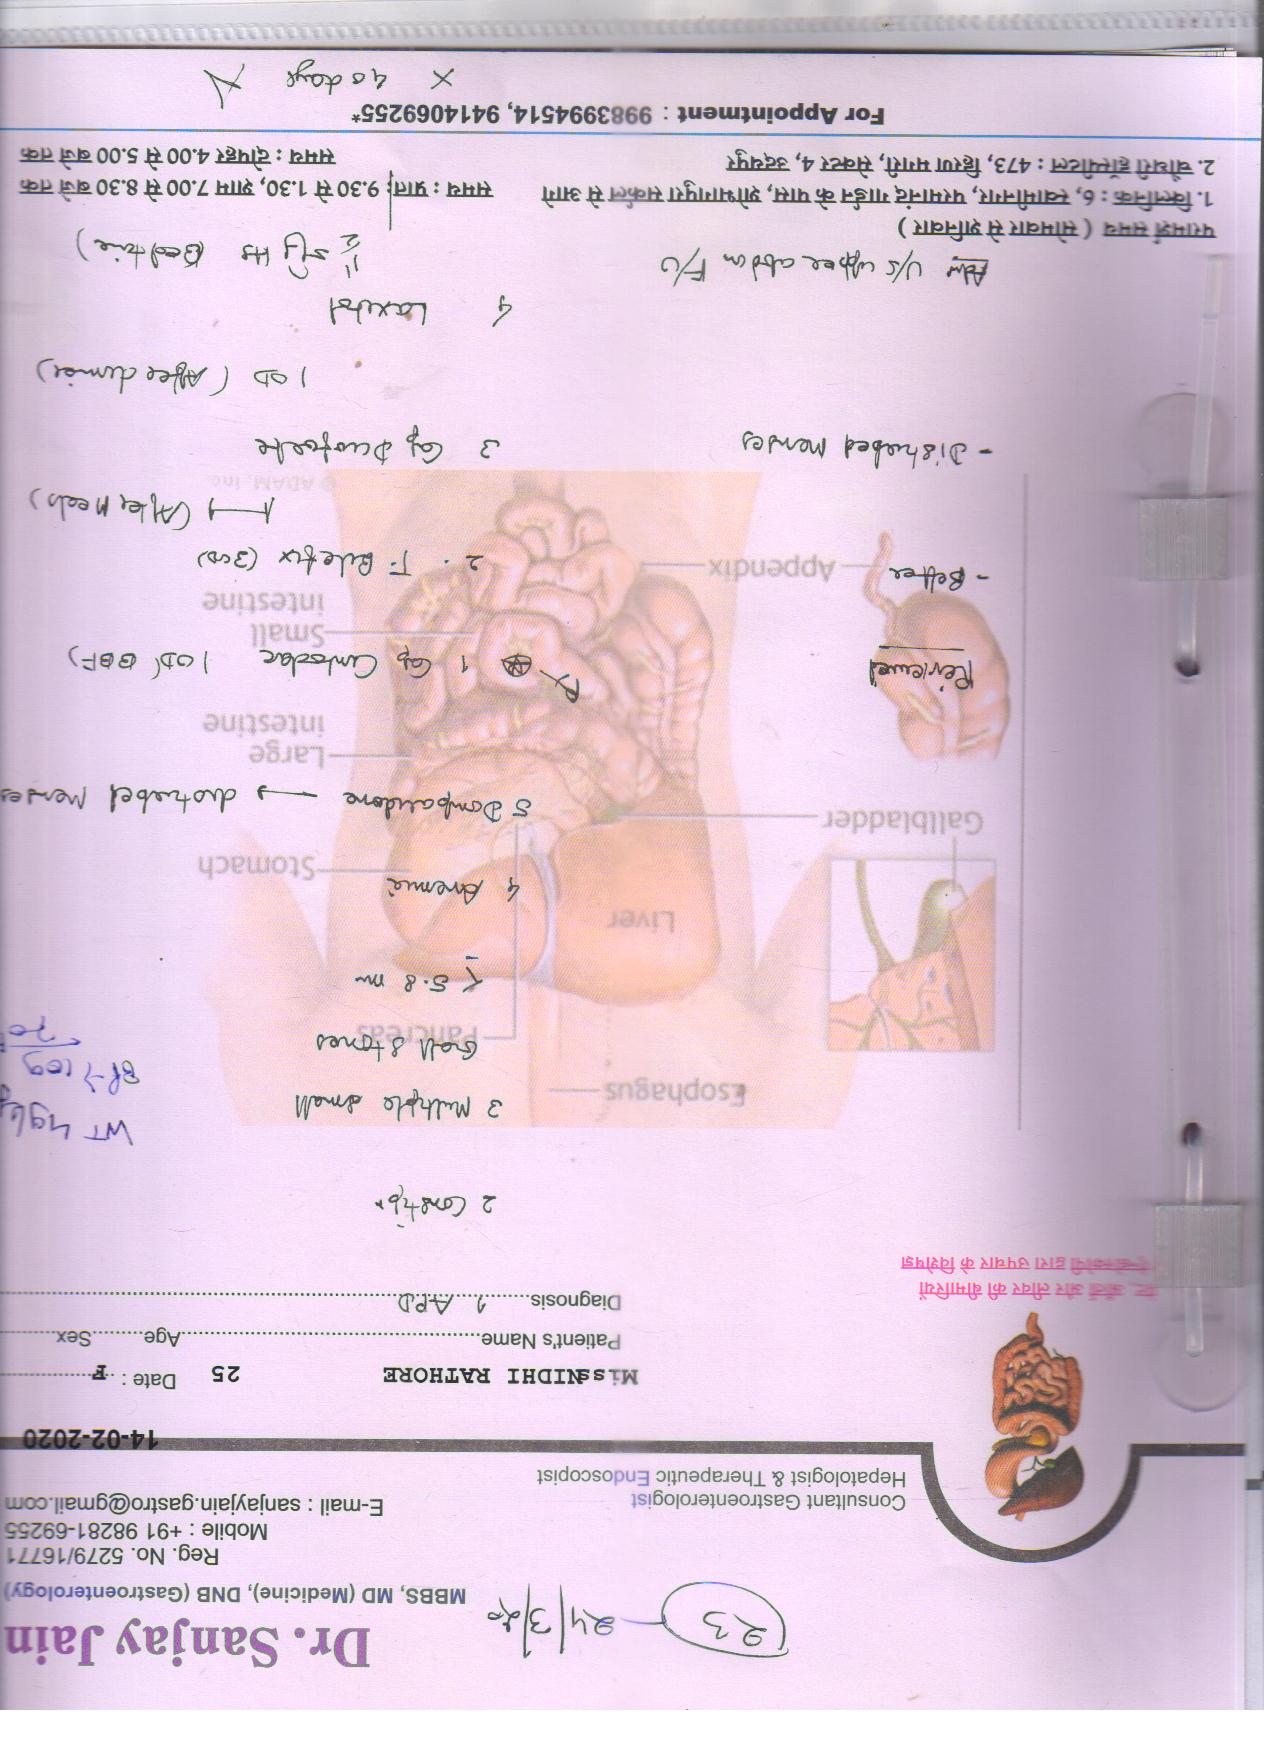 23 - 24/3/20
Dr. Sanjay Jain
MBBS, MD (Medicine), DNB (Gastroenterology)
Reg. No. 5279/16771
Mobile : +91 98281-69255
E-mail : sanjayjain.gastro@gmail.com
Consultant Gastroenterologist
Hepatologist & Therapeutic Endoscopist
14-02-2020
Miss NIDHI RATHORE 25 Date : F
Patient's Name Age Sex
Diagnosis 1 APD
पेट, आँतों और लीवर की बीमारियों
एन्डोस्कोपी द्वारा उपचार के विशेषज्ञ
2 Constipn
WT 49kg
BP → 109/70
3 Multiple small
Gall stones
< 5.8 mm
4 Anemia
5 Domperidone → disturbed Menses
Esophagus
Pancreas
Liver
Stomach
Gallbladder
Large
intestine
Small
intestine
Appendix
© ADAM, Inc.
Reviewed
- Better
- Disturbed Menses
Rx 1 Cap 1 OD (BBF)
2. T. Bilefix (300)
1-1 (After Meals)
3 Cap
1 OD (After dinner)
4 Laxitol
2 HS (Bedtime)
Adv U/S upper abdm F/U
परामर्श समय ( सोमवार से शनिवार )
1. क्लिनिक : 6, स्वामीनगर, परमानंद गार्डन के पास, शोभागपुरा सर्कल से आगे समय : प्रातः 9.30 से 1.30, शाम 7.00 से 8.30 बजे तक
2. चौधरी हॉस्पीटल : 473, हिरण मगरी, सेक्टर 4, उदयपुर समय : दोपहर 4.00 से 5.00 बजे तक
For Appointment : 9983994514, 9414069255*
X 40 days